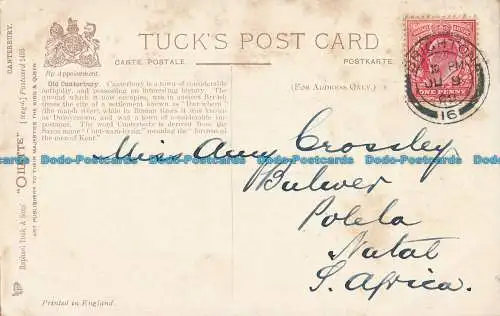 TUCK'S POST CARD
CARTE POSTALE
POSTKARTE
By Appointment
(FOR ADDRESS ONLY.)
CANTERBURY.
Raphael Tuck & Sons' "OILETTE" [REGD.] Postcard
ART PUBLISHERS TO THEIR MAJESTIES THE KING & QUEEN
Old Canterbury. Canterbury is a town of considerable
antiquity, and possesses an interesting history. The
ground which it now occupies, was in ancient British
times the site of a settlement known as
while in Roman times it was known
as Durovernum, and was a town of considerable im-
portance. The word Canterbury is derived from the
Saxon name meaning the "fortress of
the men of Kent."
ONE PENNY
16
Miss Amy Crossley
Bulwer
Polela
Natal
S. Africa.
Printed in England.
Bodo-Postcards Bodo-Postcards Bodo-Postcards Bodo-Postcards Bodo-Postcards